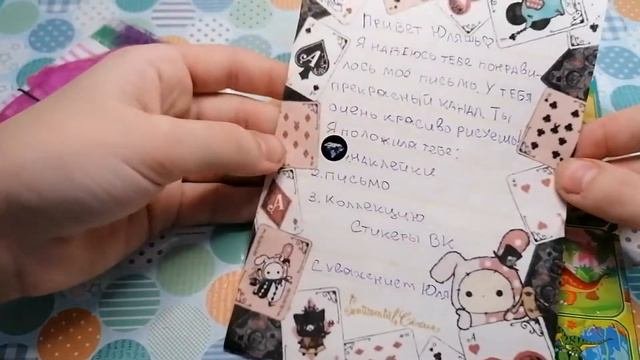 Привет Юляшь♡
Я надеюсь тебе понрави-
лось моё письмо. У тебя
прекрасный канал. Ты
очень красиво рисуешь!
Я положила тебе:
наклейки
2. письмо
3. коллекцию
Стикеры ВК
С уважением Юля
Sentimental Circus